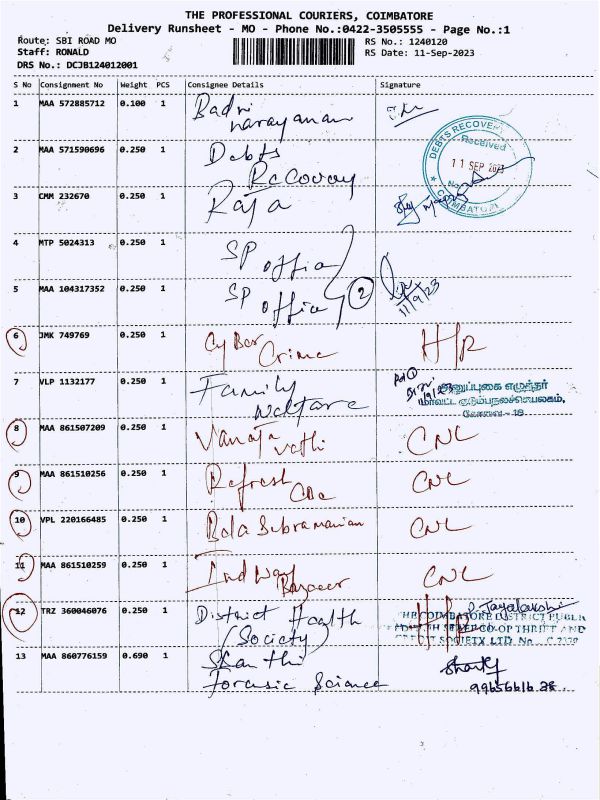 THE PROFESSIONAL COURIERS, COIMBATORE
Delivery Runsheet - MO - Phone No.:0422-3505555 - Page No.:1
Route: SBI ROAD MO
RS No.: 1240120
Staff: RONALD
RS Date: 11-Sep-2023
DRS No.: DCJB124012001
S No Consignment No Weight PCS Consignee Details Signature
1 MAA 572885712 0.100 1 Badri
narayanan
2 MAA 571590696 0.250 1 Debts
Recovery
DEBTS RECOVERY
Received
11 SEP 2023
COIMBATORE
3 CMM 232670 0.250 1 Raja
4 MTP 5024313 0.250 1 SP office
5 MAA 104317352 0.250 1 SP office 2
11/9/23
6 JMK 749769 0.250 1 Cyber
Crime H/R
7 VLP 1132177 0.250 1 Family
Welfare
அனுப்புகை எழுத்தர்
மாவட்ட குடும்பநலச்செயலகம்,
கோவை - 18
8 MAA 861507209 0.250 1 Vanaja
vathi CNL
9 MAA 861510256 0.250 1 Refresh
CNL
10 VPL 220166485 0.250 1 Bala Subramanian CNL
11 MAA 861510259 0.250 1 Ind Way
Bazaeer CNL
12 TRZ 360046076 0.250 1 District Health
(Society)
THE COIMBATORE DISTRICT PUBLIC
HEALTH CO-OP THRIFT AND
CREDIT SOCIETY LTD. No
13 MAA 860776159 0.690 1 Shanthi
Forensic Science